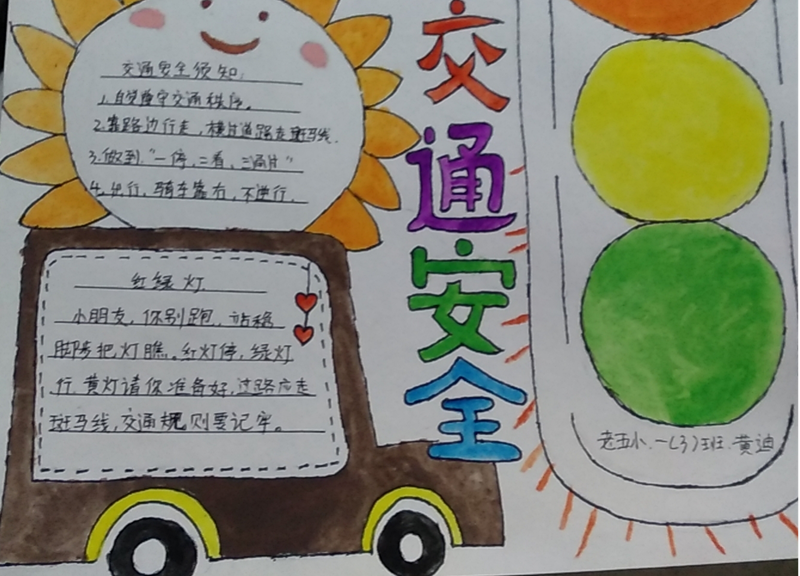 交通安全须知:
1.自觉遵守交通秩序。
2.靠路边行走，横过道路走斑马线.
3.做到:"一停、二看、三通过"
4.出行，骑车靠右，不逆行.
红绿灯
小朋友，你别跑，站稳
脚步把灯瞧。红灯停，绿灯
行，黄灯请你准备好，过路应走
斑马线，交通规则要记牢。
交通安全
老五小.一(3)班.黄迪